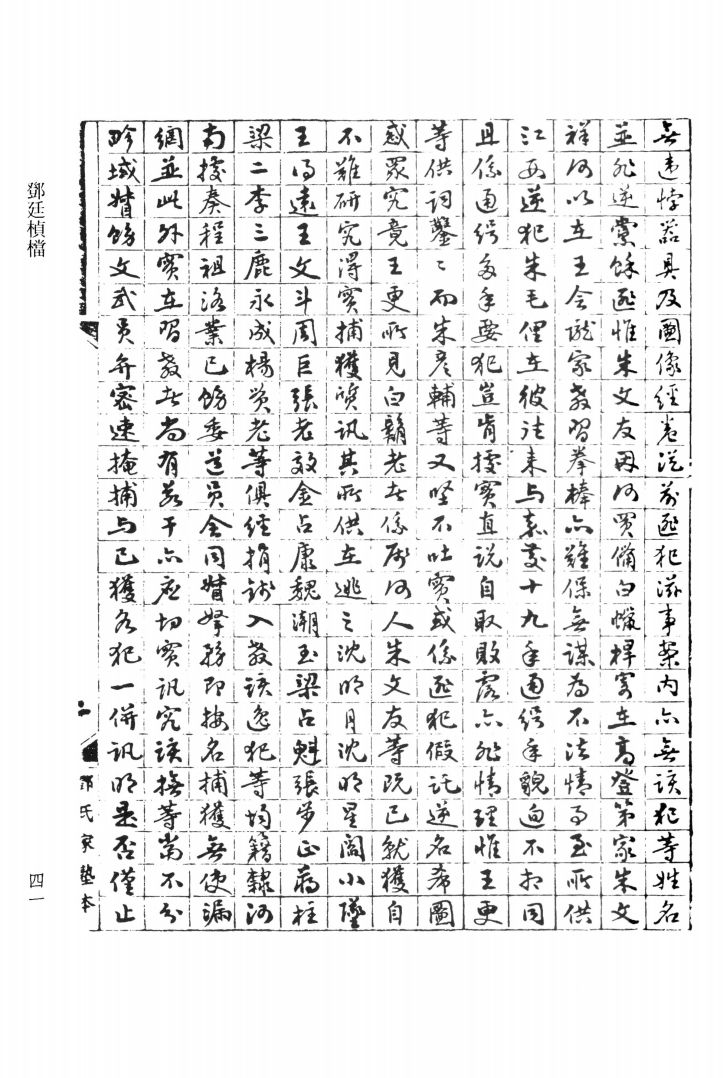 無違悖器具及圖像經卷從前逆犯滋事案内亦無該犯等姓名
並非逆黨餘逃惟朱文友因何買備白蠟桿寄在高登第家朱文
祥何以在王會隴家教習拳棒亦難保無謀為不法情事至所供
江西逆犯朱毛俚在彼往來与嘉慶十九年通緝年貌迥不相同
且係通緝多年要犯豈肯據實直說自取敗露亦非情理惟王更
等供詞鑿〻而朱彦輔等又堅不吐實或係逃犯假託逆名希圖
惑眾究竟王更所見白鬍老者係屬何人朱文友等既已就獲自
不難研究得實捕獲質訊其所供在逃之沈明月沈明星閻小墜
王得遠王文斗周巨張老敬金占康魏潮玉梁占魁張步正蔣柱
梁二李三鹿永成楊賀老等俱經捐錢入教該逸犯等均籍隸河
南據奏程祖洛業已飭委道員會同督拏務即按名捕獲無使漏
網並此外實在習教者尚有若干亦應切實訊究該撫等當不分
畛域督飭文武員弁密速掩捕与已獲各犯一併訊明是否僅止
鄧廷楨檔
鄧氏家塾本
四一